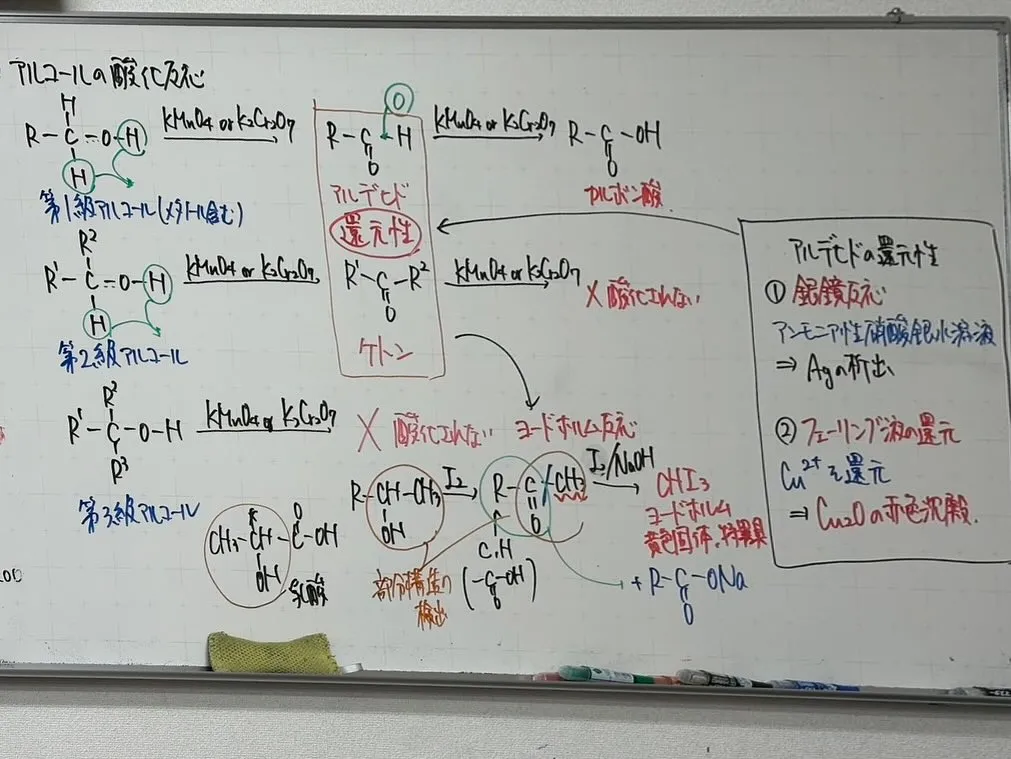 アルコールの酸化反応
H
R－C－O－H
H
KMnO4 or K2Cr2O7
O
R－C－H
O
KMnO4 or K2Cr2O7
R－C－OH
O
第1級アルコール(メタノール含む)
アルデヒド
還元性
カルボン酸
R2
R1－C－O－H
H
KMnO4 or K2Cr2O7
R1－C－R2
O
KMnO4 or K2Cr2O7
×酸化されない
第2級アルコール
ケトン
R2
R1－C－O－H
R3
KMnO4 or K2Cr2O7
× 酸化されない
第3級アルコール
アルデヒドの還元性
① 銀鏡反応
アンモニア性硝酸銀水溶液
⇒ Agの析出
② フェーリング液の還元
Cu2+を還元
⇒ Cu2Oの赤色沈殿
ヨードホルム反応
R－CH－CH3
OH
I2
R－C－CH3
O
I2/NaOH
CHI3
ヨードホルム
黄色固体、特異臭
C,H
(－C－OH)
O
+ R－C－ONa
O
部分構造の
検出
CH3－CH－C－OH
O
OH
乳酸